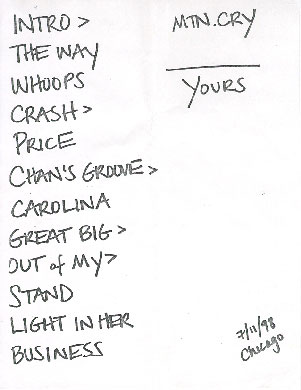 INTRO >
THE WAY
WHOOPS
CRASH >
PRICE
CHAN'S GROOVE >
CAROLINA
GREAT BIG >
OUT of MY >
STAND
LIGHT IN HER
BUSINESS
MTN. CRY
YOURS
7/11/98
Chicago